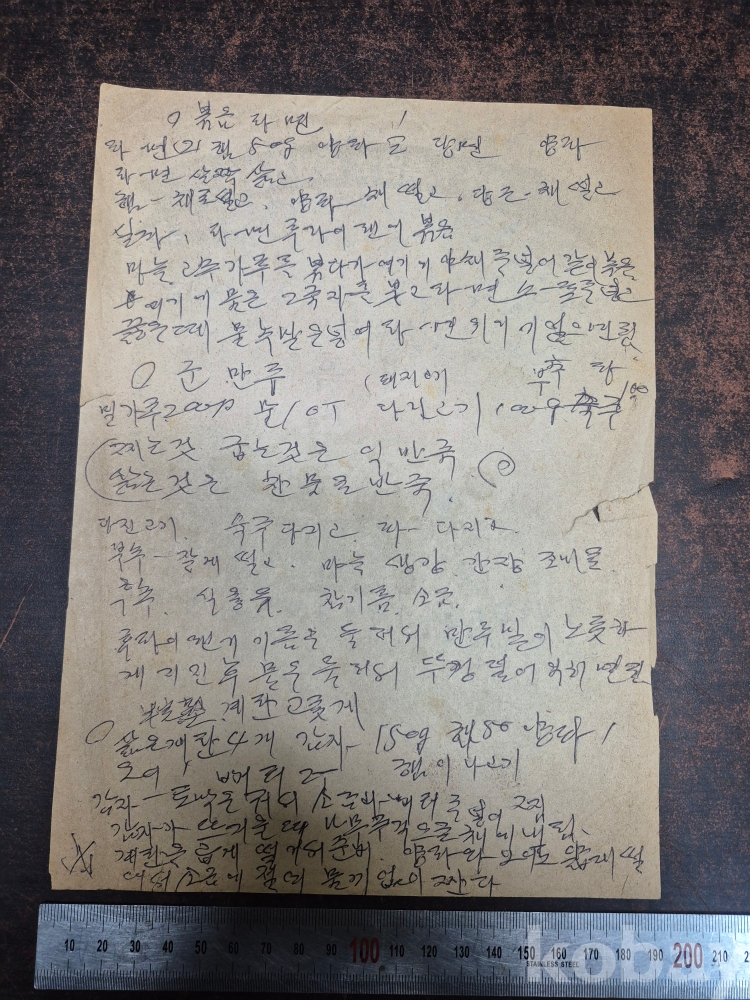 ○ 볶음 라면
라면 2 햄 50g 양파 도 당면 양파
라면 살짝 삶고
햄- 채로 썰고, 양파 채 썰고, 당근- 채 썰고
라면 후라이 팬에 볶음
마늘 고추가루를 볶다가 여기에 야채 를 넣어 같이 볶음
여기에 물은 2국자를 붓고 라면 스-프를 넣고
끓을 때 물녹말은 넣어 라면
○ 군만두 (돼지고기 부추 파
밀가루 200g 물 1 다진고기 100g 숙주 100
찌는것 굽는것은 익반죽
삶는것은 찬물로 반죽
다진고기. 숙주 다지고. 파- 다지고.
부추- 잘게 썰고. 마늘 생강 간장 조미료.
후추. 식용유. 참기름. 소금.
후라이팬에 기름을 둘러서 만두 밑이 노릇하
게 지진 후 물을 둘러서 뚜껑 덮어 익히면 됨
계란 고롯게
○ 삶은계란 4개 감자- 150g 햄 50 양파 1
오이 1 빠터 2- 햄이나 고기
감자- 토막을 쳐서 소금 빠터 를 넣어
감자가 뜨거울 때 나무주걱으로 채에 내림.
계란을 굵게 썰어서 준비. 양파와 오이도 굵게 썰
어서 소금에 절여 물기 없이 짠다
10 20 30 40 50 60 70 80 90 100 110 120 130 140 150 160 170 180 190 200 210
STAINLESS STEEL
kobay